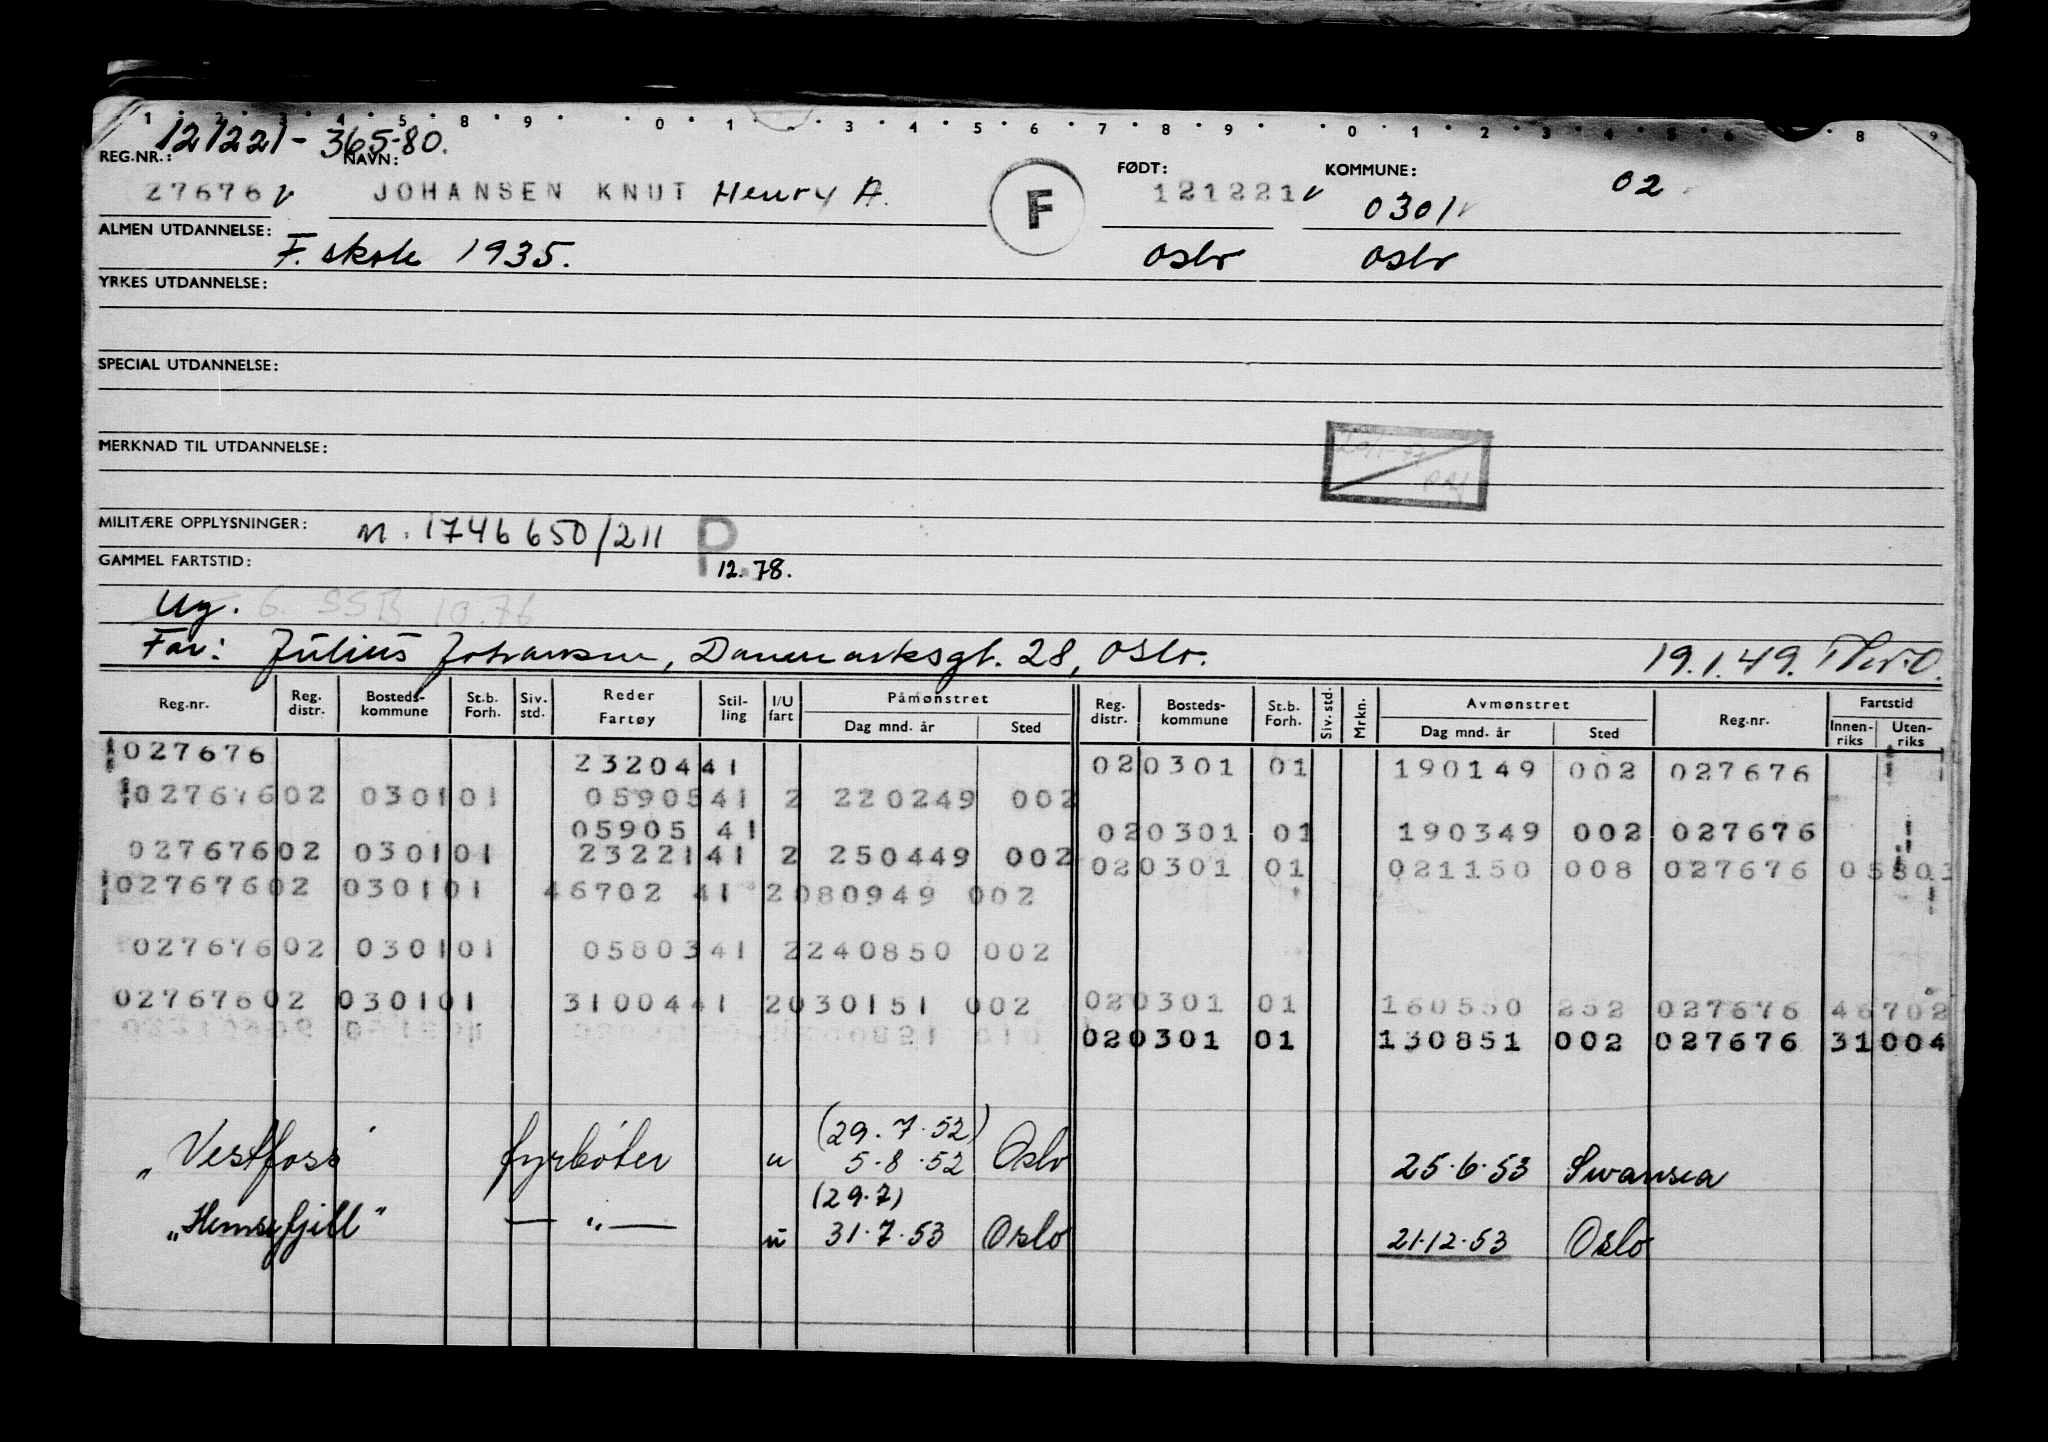 121221-365-80.
REG.NR.: NAVN: FØDT: KOMMUNE:
27676 v JOHANSEN KNUT Henry A. F 121221 v 0301 v 02
ALMEN UTDANNELSE: F. skole 1935. Oslo Oslo
YRKES UTDANNELSE:
SPECIAL UTDANNELSE:
MERKNAD TIL UTDANNELSE:
MILITÆRE OPPLYSNINGER: M. 1746650/211 P
GAMMEL FARTSTID: 12.78.
Ug. 6. SSB 10.76
Far: Julius Johansen, Danmarksgt. 28, Oslo. 19.1.49.
Reg.nr. Reg. distr. Bosteds-kommune St.b. Forh. Siv. std. Reder Fartøy Stil-ling I/U fart Påmønstret Dag mnd. år Sted Reg. distr. Bosteds-kommune St.b. Forh. Siv. std. Mrkn. Avmønstret Dag mnd. år Sted Reg.nr. Fartstid Innen-riks Uten-riks
027676 2320441 020301 01 190149 002 027676
02767602 030101 0590541 2 220249 002
05905 41 020301 01 190349 002 027676
02767602 030101 2322141 2 250449 002
020301 01 021150 008 027676
02767602 030101 46702 41 2080949 002
02767602 030101 0580341 2240850 002
02767602 030101 3100441 2030151 002 020301 01 160550 252 027676 46702
020301 01 130851 002 027676 31004
(29.7.52)
"Vestfoss" fyrbøter u 5.8.52 Oslo 25.6.53 Swansea
(29.7)
"Hemsefjell" — " — u 31.7.53 Oslo 21.12.53 Oslo